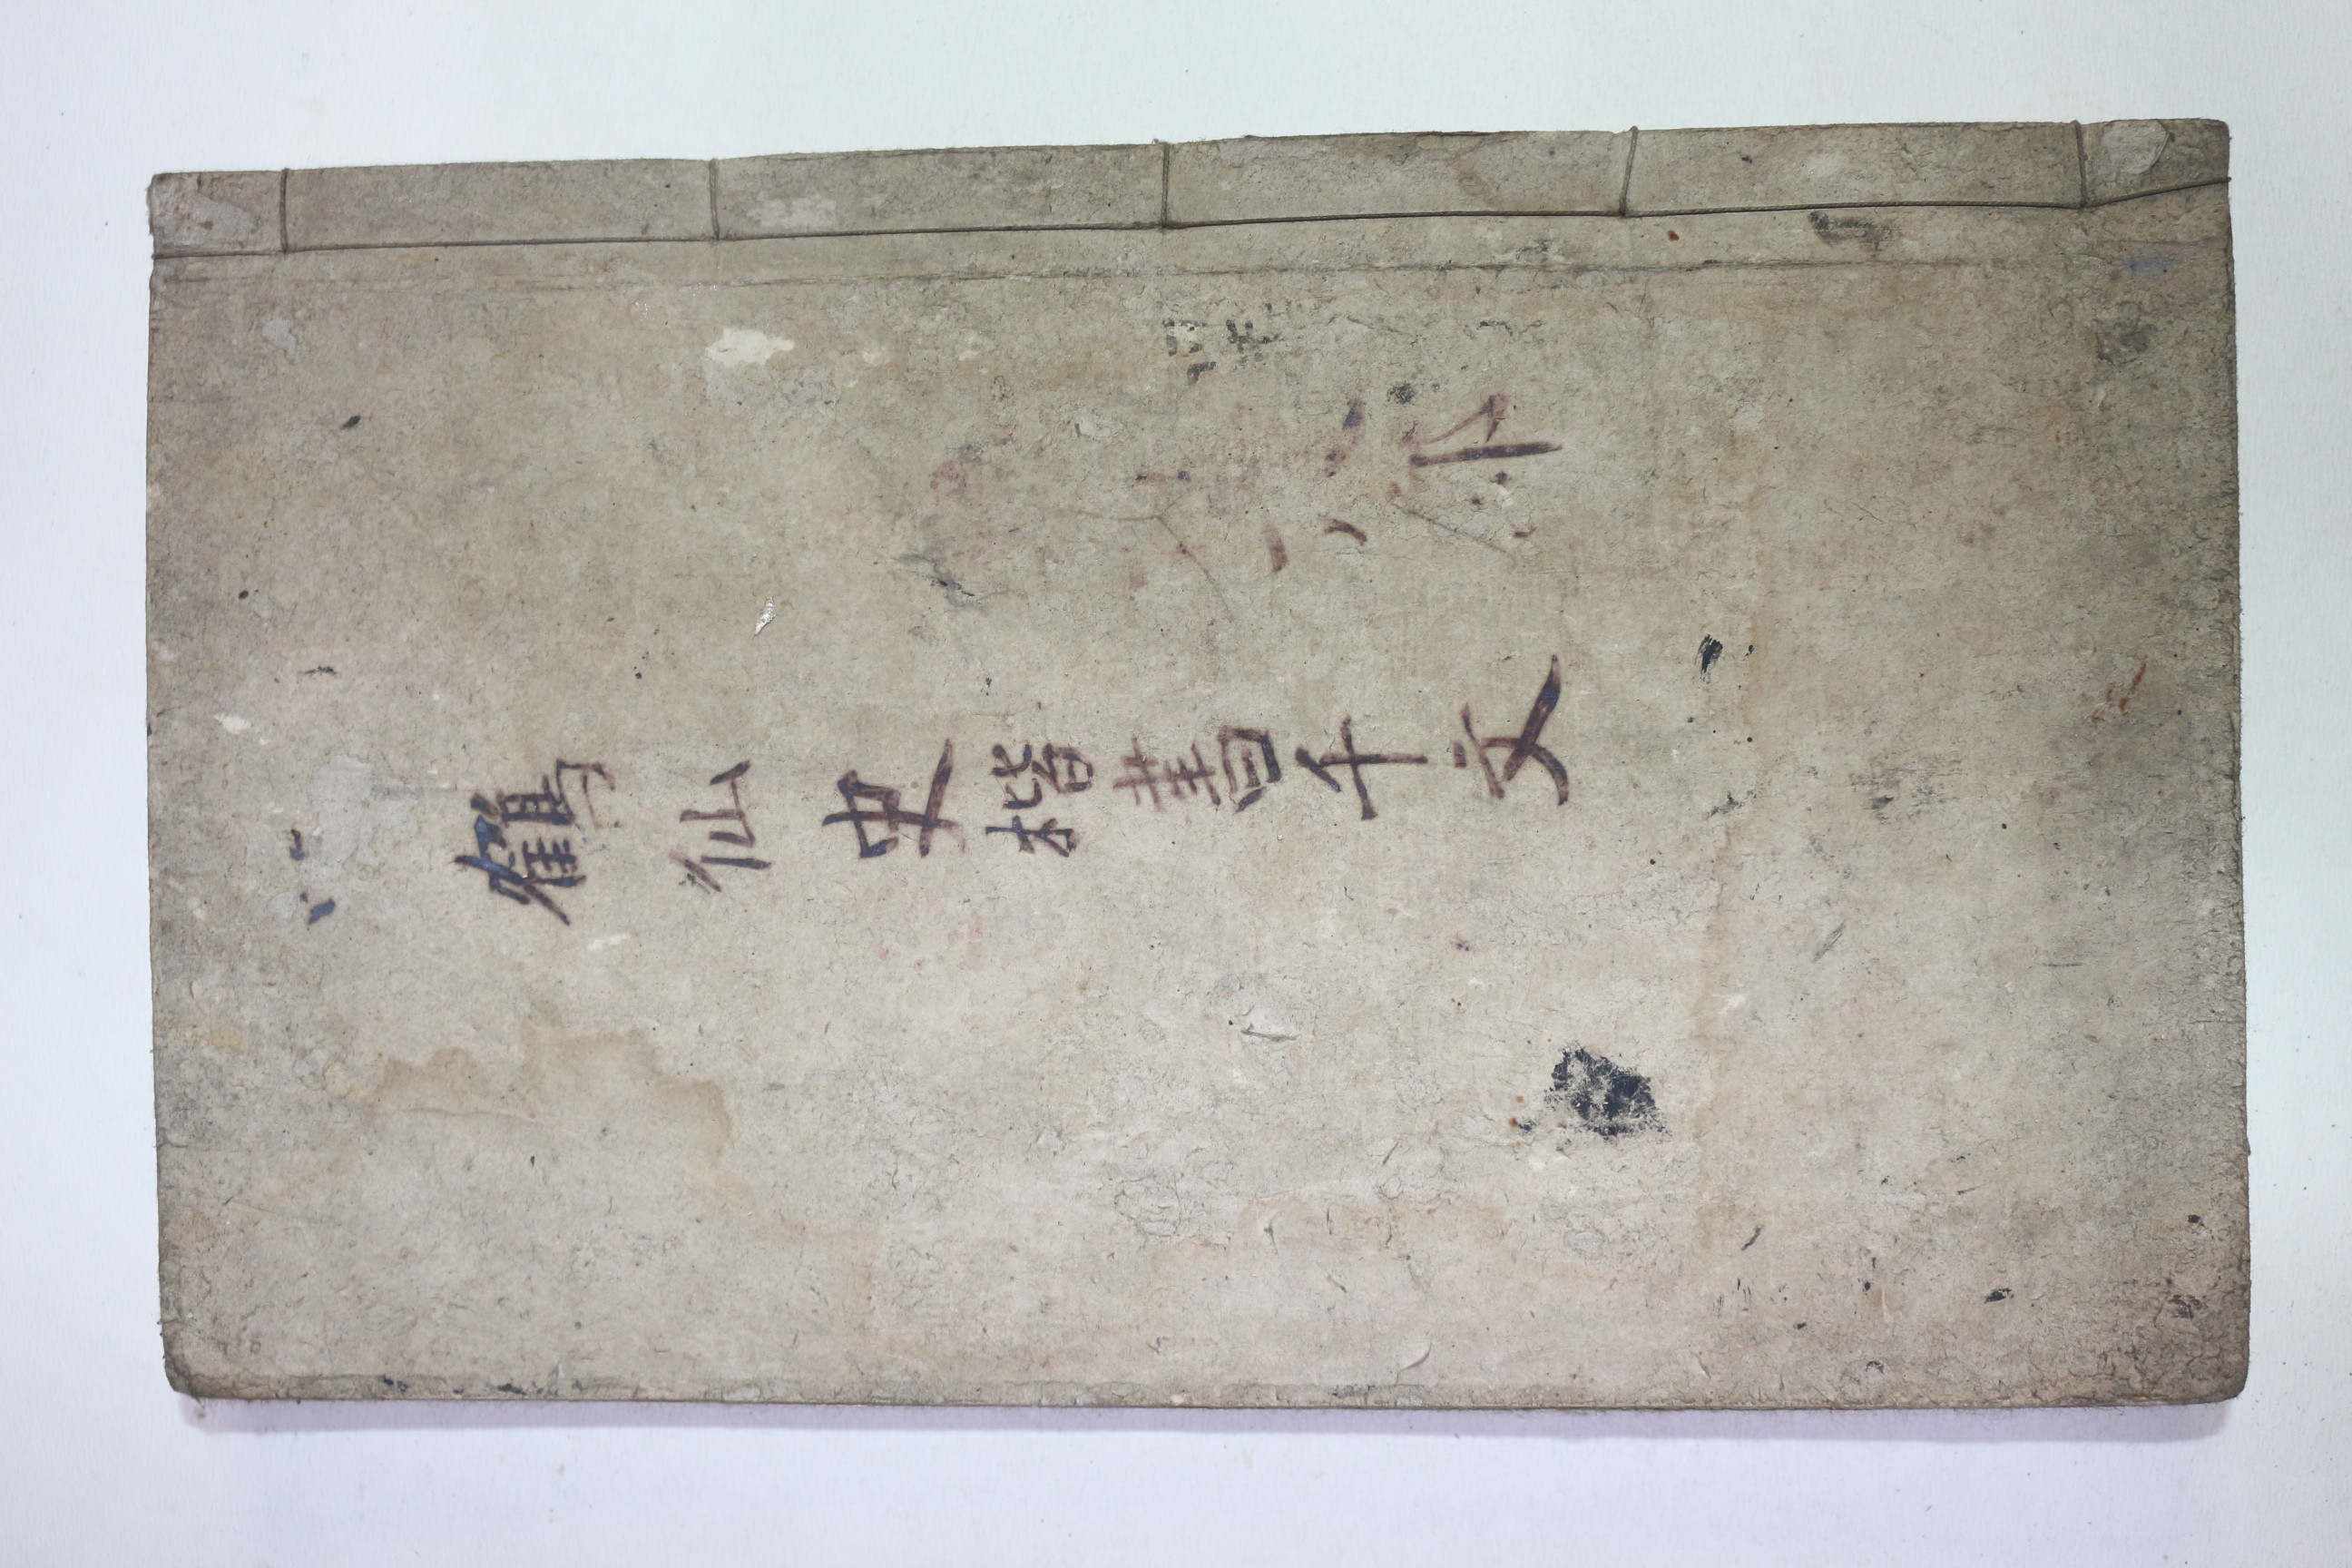 鶴仙史楷書千文